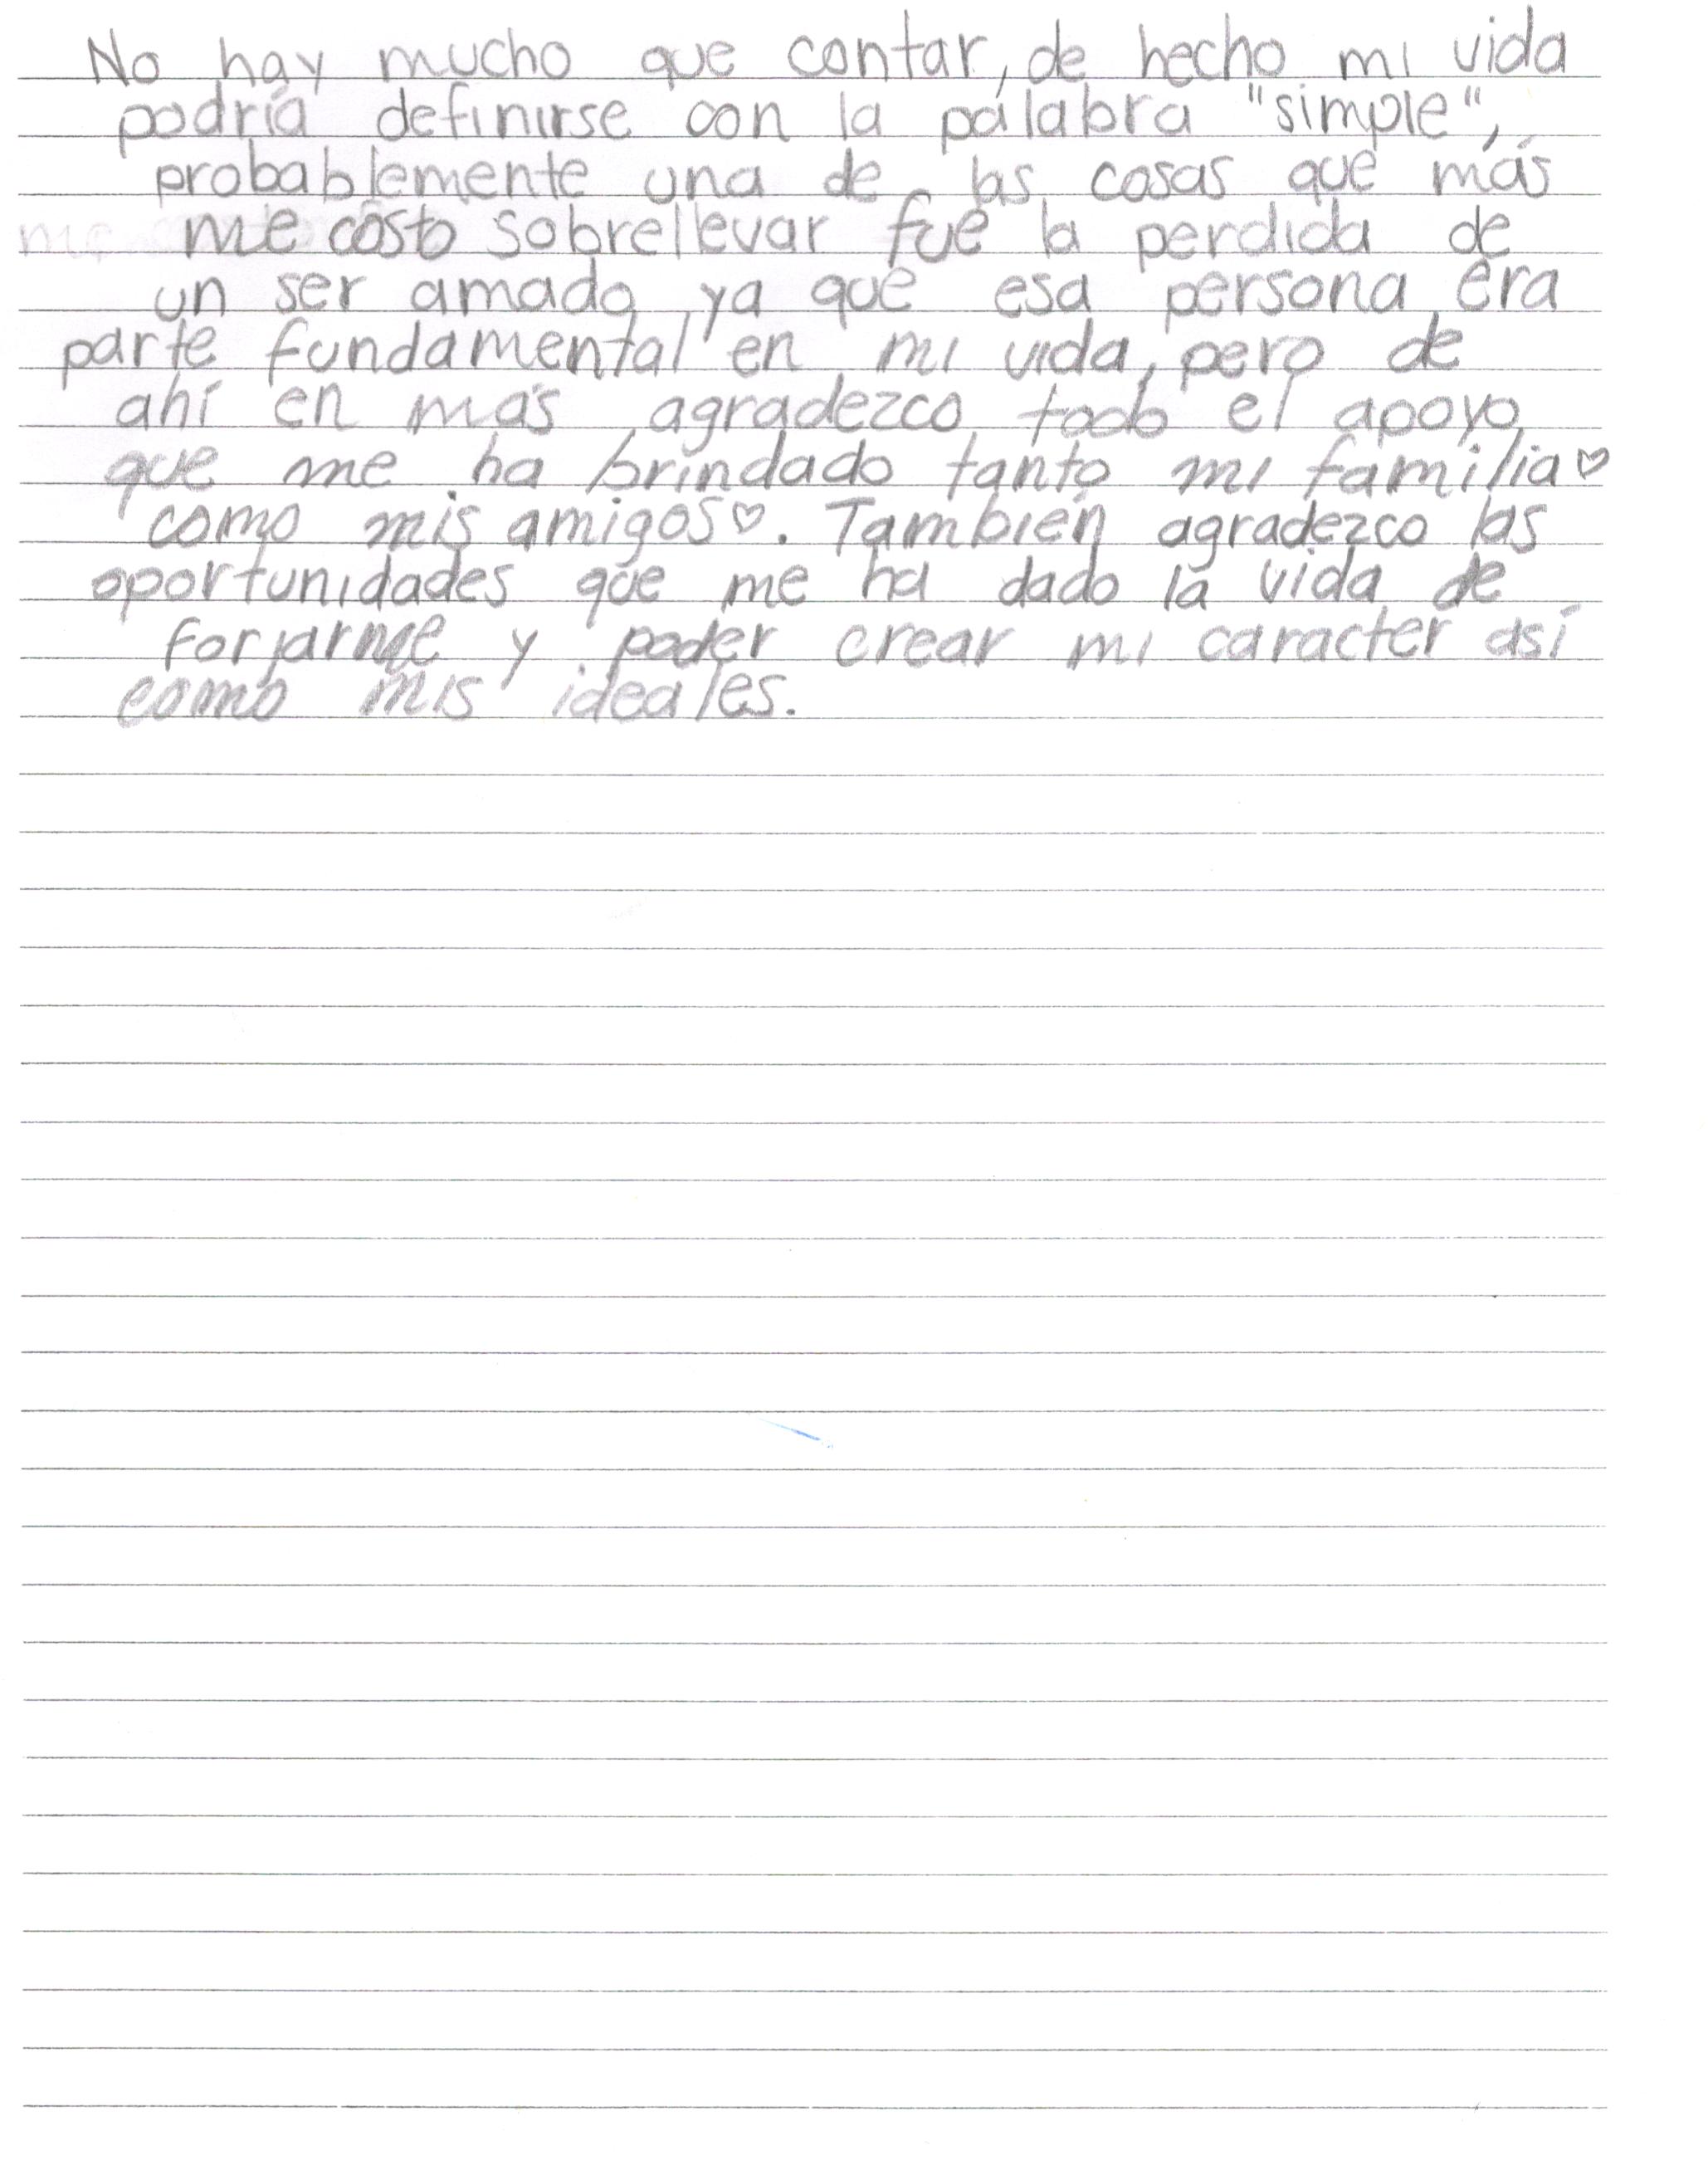 No hay mucho que contar, de hecho mi vida
podría definirse con la palabra "simple",
probablemente una de las cosas que más
me costo sobrellevar fue la perdida de
un ser amado, ya que esa persona era
parte fundamental en mi vida, pero de
ahí en más agradezco todo el apoyo
que me ha brindado tanto mi familia♡
como mis amigos♡. También agradezco las
oportunidades que me ha dado la vida de
forjarme y poder crear mi caracter así
como mis ideales.